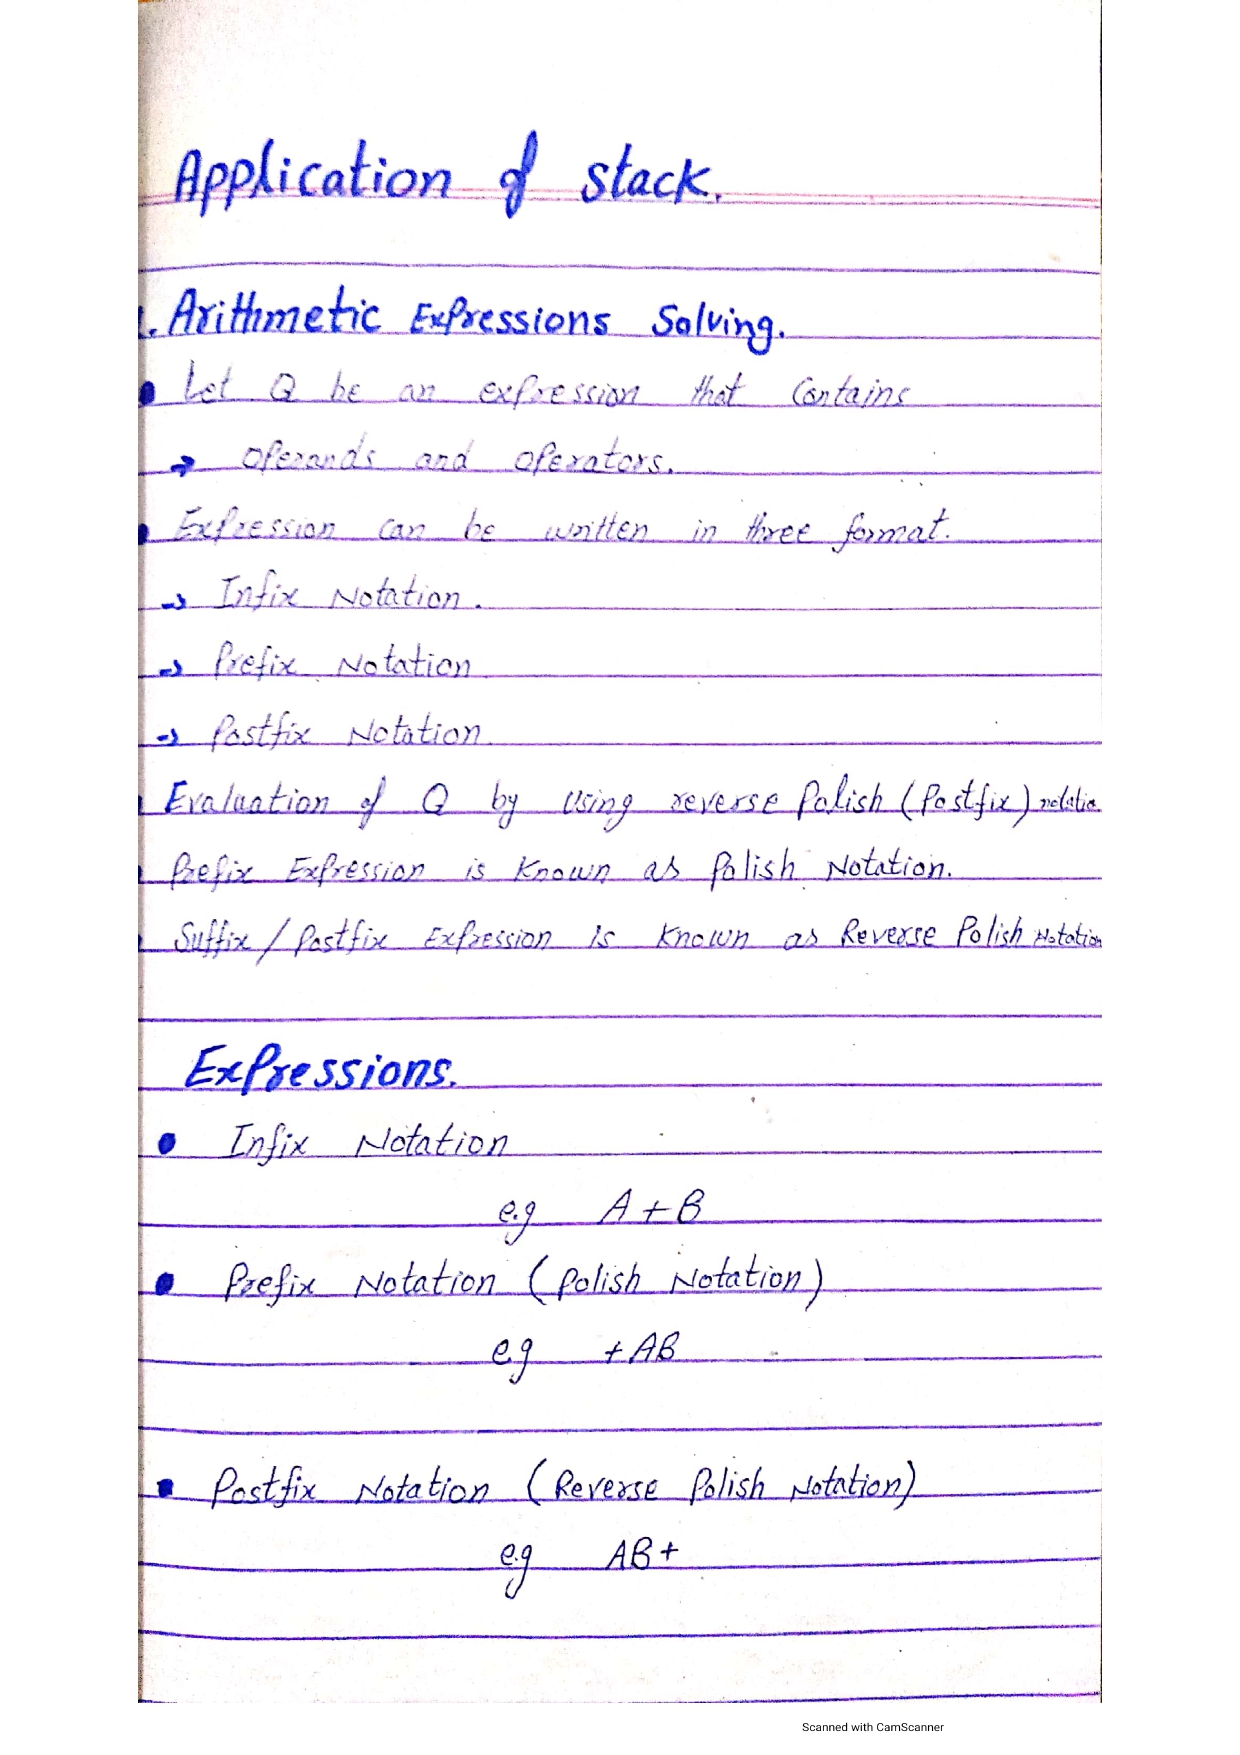 Application of stack.
1. Arithmetic Expressions Solving.
• Let Q be an expression that Contains
→ operands and operators.
• Expression can be written in three format.
→ Infix Notation.
→ Prefix Notation
→ Postfix Notation.
• Evaluation of Q by using reverse Polish (Postfix) notatio
• Prefix Expression is Known as Polish Notation.
• Suffix / Postfix Expression is Known as Reverse Polish Notation
Expressions.
• Infix Notation
e.g A + B
• Prefix Notation (Polish Notation)
e.g + AB
• Postfix Notation (Reverse Polish Notation)
e.g AB +
Scanned with CamScanner